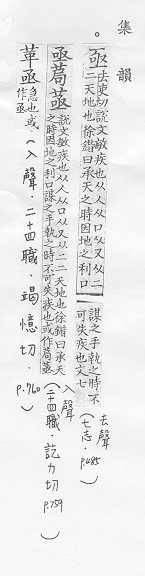 集韻
。亟 去吏切說文敏疾也从人从口从又从二
二天地也徐鍇曰承天之時因地之利口
謀之手執之時不
可失疾也文七
(去聲 七志．p.485)
亟茍䓧 說文敏疾也从人从口从又从二二天地也徐鍇曰承天
之時因地之利口謀之手執之時不可失疾也或作茍䓧
(入聲 二十四職．訖力切 p.759)
革亟 急也或
作亟
(入聲．二十四職．竭憶切．p.760)